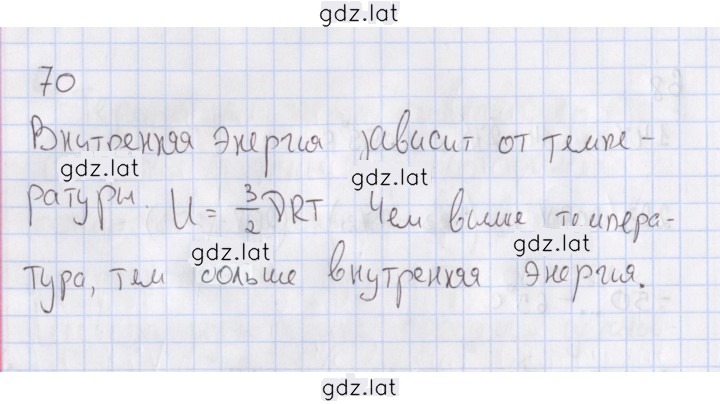 gdz.lat
70
Внутренняя энергия зависит от темпе-
gdz.lat
gdz.lat
ратуры. U = 3/2 νRT Чем выше темпера-
gdz.lat
gdz.lat
тура, тем больше внутренняя энергия.
gdz.lat